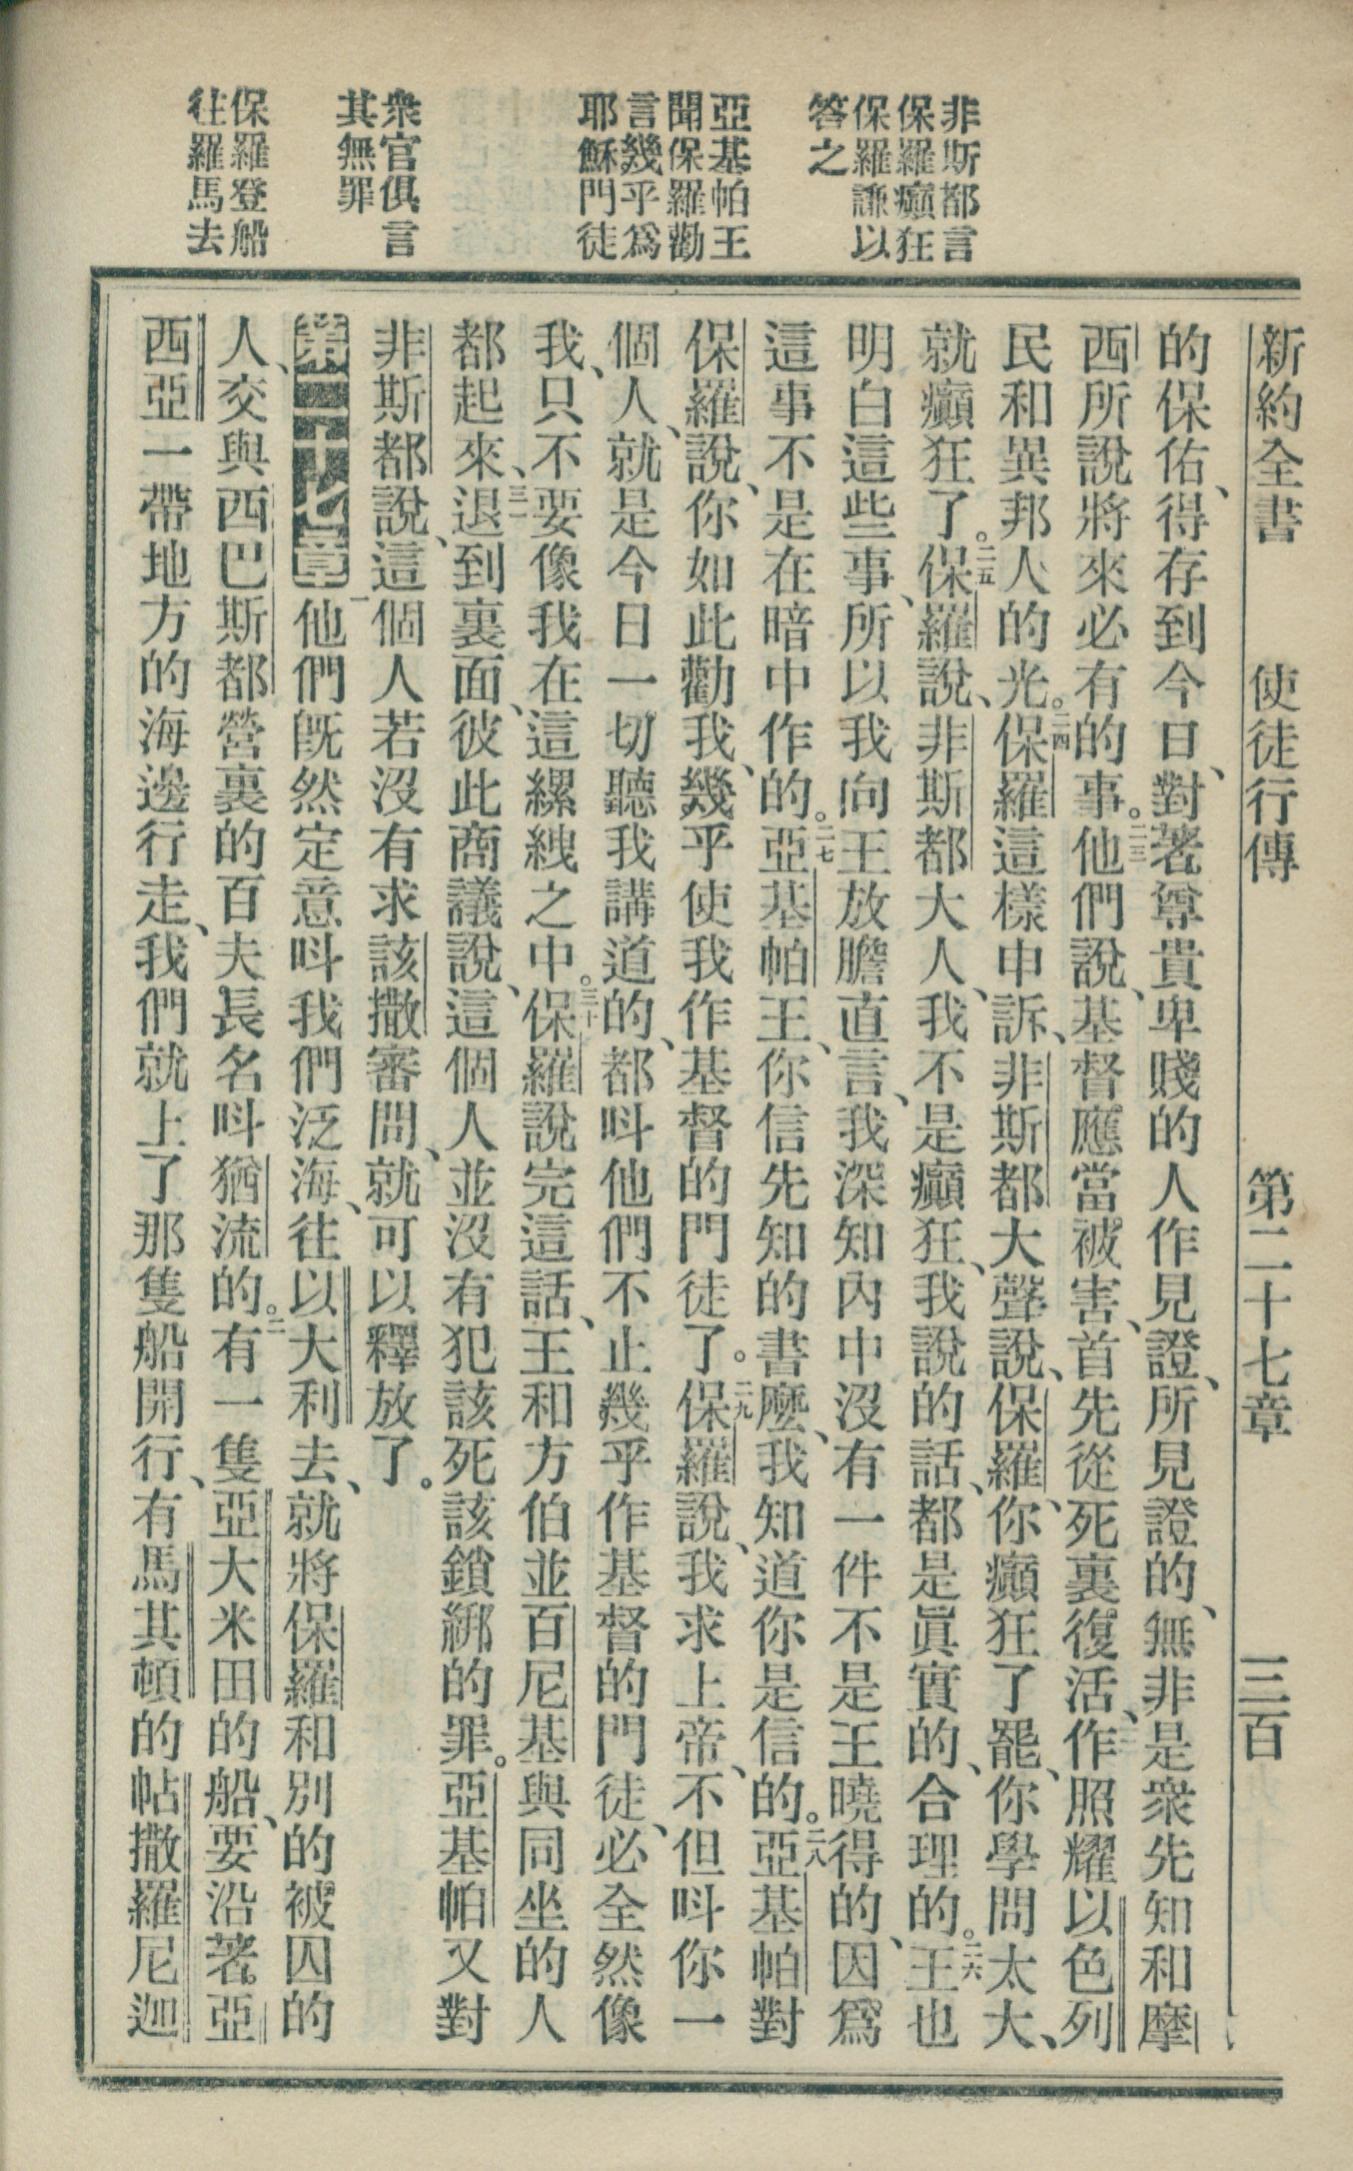 新約全書　使徒行傳　第二十七章　三百
非斯都言
保羅癲狂
保羅謙以
答之
亞基帕王
聞保羅勸
言幾乎爲
耶穌門徒
衆官俱言
其無罪
保羅登船
往羅馬去
的保佑、得存到今日、對著尊貴卑賤的人作見證、所見證的、無非是衆先知和摩
西所說將來必有的事。二三他們說、基督應當被害、首先從死裏復活、作照耀以色列
民和異邦人的光。二四保羅這樣申訴、非斯都大聲說、保羅、你癲狂了罷、你學問太大、
就癲狂了。二五保羅說、非斯都大人、我不是癲狂、我說的話、都是眞實的、合理的。二六王也
明白這些事、所以我向王放膽直言、我深知內中沒有一件不是王曉得的、因爲
這事不是在暗中作的。二七亞基帕王、你信先知的書麼、我知道你是信的。二八亞基帕對
保羅說、你如此勸我、幾乎使我作基督的門徒了。二九保羅說、我求上帝、不但呌你一
個人、就是今日一切聽我講道的、都呌他們不止幾乎作基督的門徒、必全然像
我、只不要像我在這縲絏之中。三十保羅說完這話、王和方伯並百尼基與同坐的人
都起來、三一退到裏面、彼此商議說、這個人並沒有犯該死該鎖綁的罪。亞基帕又對
非斯都說、這個人若沒有求該撒審問、就可以釋放了。
第二十七章一他們旣然定意呌我們泛海、往以大利去、就將保羅和別的被囚的
人、交與西巴斯都營裏的百夫長名呌猶流的。二有一隻亞大米田的船、要沿著亞
西亞一帶地方的海邊行走、我們就上了那隻船開行、有馬其頓的帖撒羅尼迦